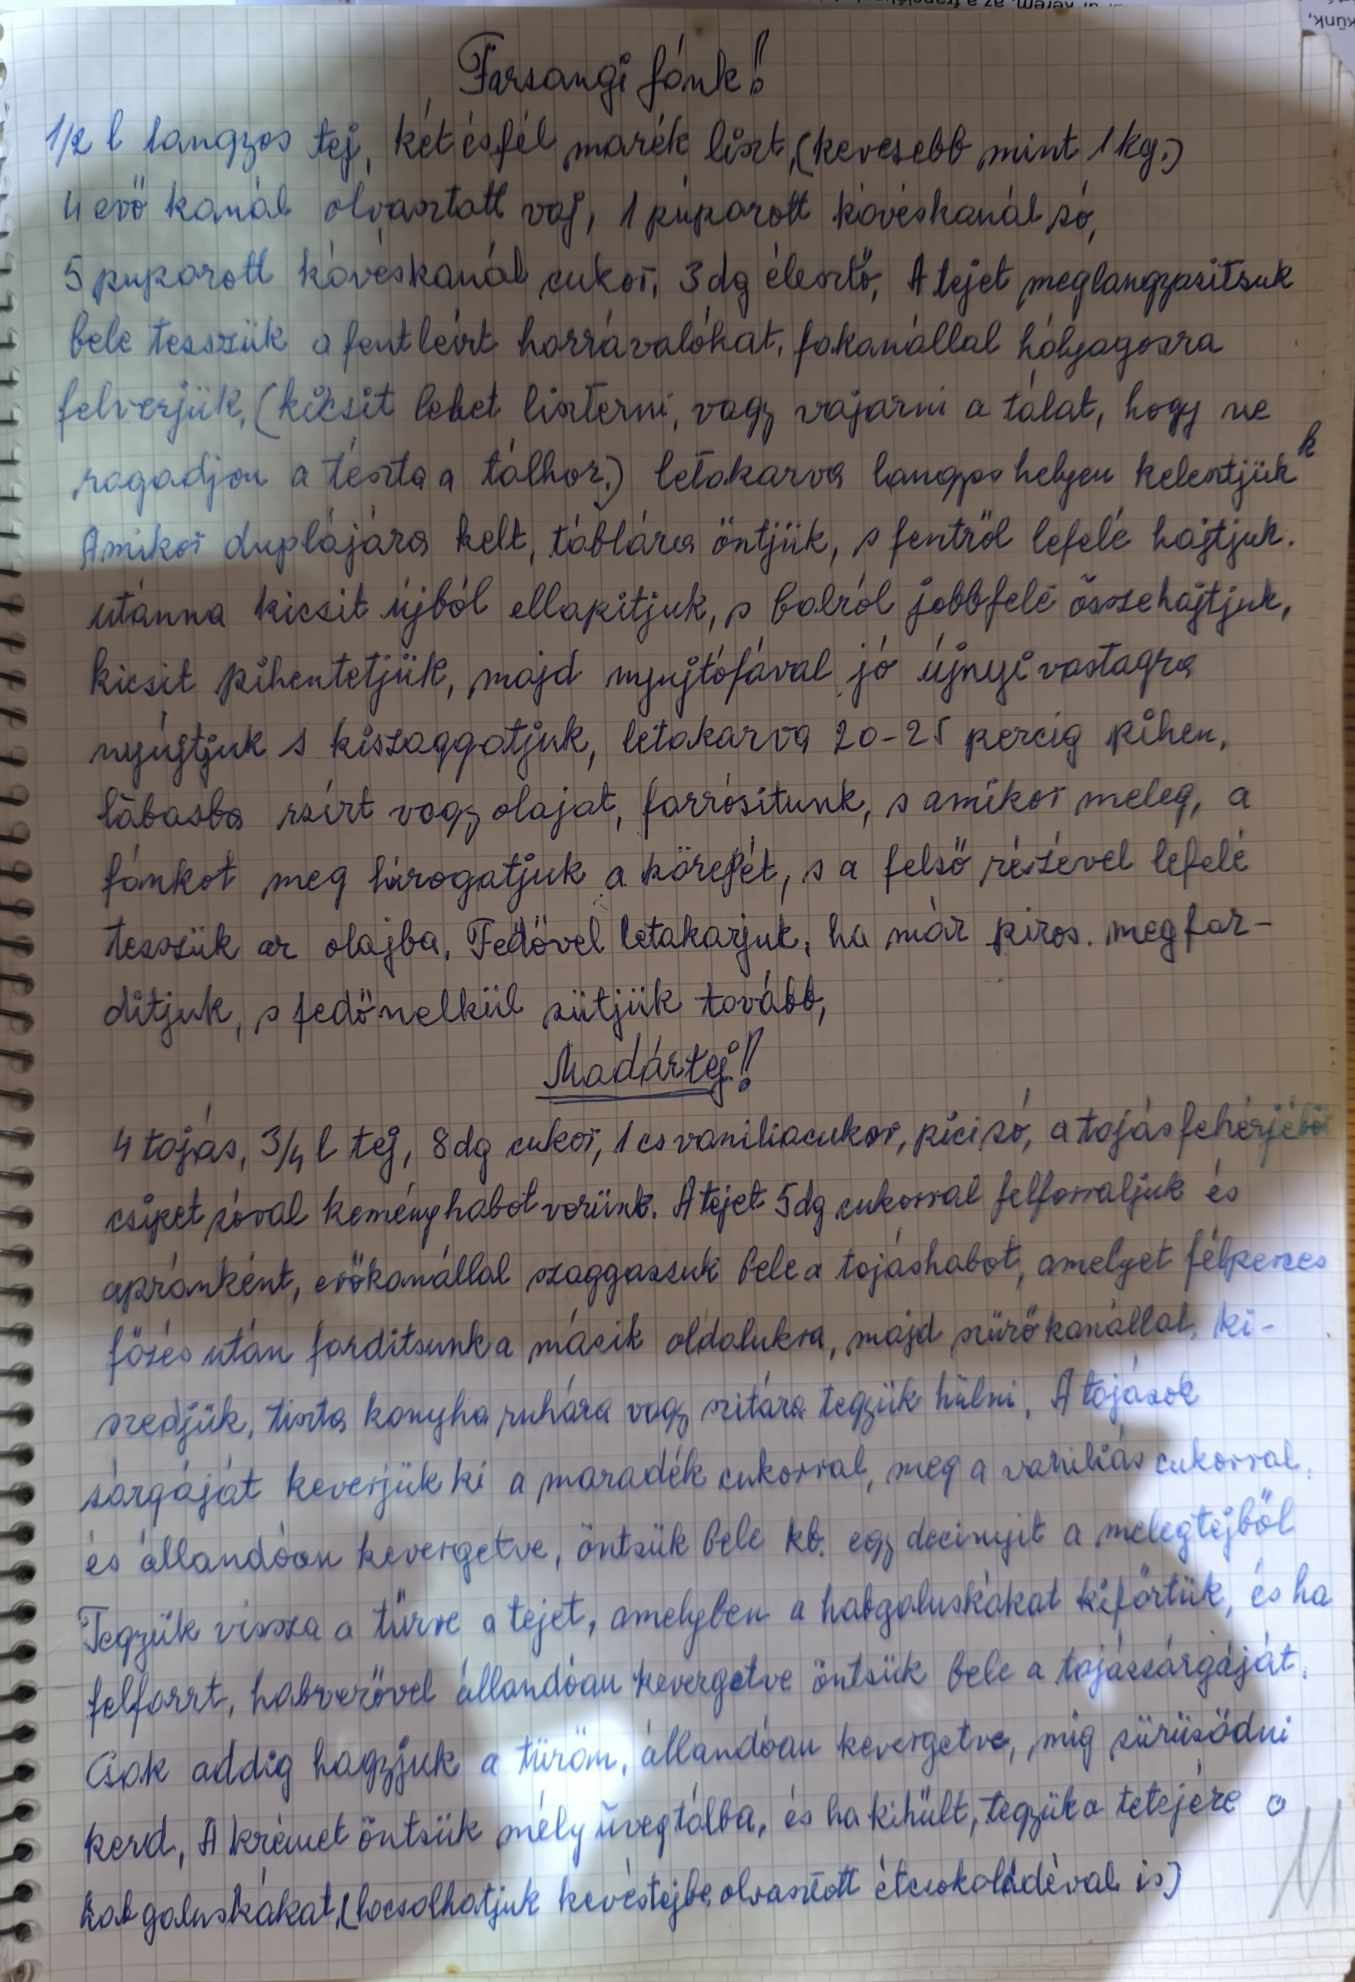 Farsangi fánk!
1/2 l langyos tej, két ésfél marék liszt, (kevesebb mint 1 kg.)
4 evő kanál olvasztott vaj, 1 púpozott kávéskanál só,
5 pupozott kávéskanál cukor, 3 dg élesztő, A tejet meglangyasitsuk
bele tesszük a fentleírt hozzávalókat, fakanállal hólyagosra
felverjük, (kicsit lehet lisztezni, vagy vajazni a tálat, hogy ne
ragadjon a tészta a tálhoz.) letakarva langyos helyen kelesztjük
Amikor duplájára kelt, táblára öntjük, s fentről lefelé hajtjuk.
utánna kicsit újból ellapitjuk, s balról jobbfelé összehajtjuk,
kicsit pihentetjük, majd nyujtófával jó újnyi vastagra
nyújtjuk s kiszaggatjuk, letakarva 20-25 percig pihen,
lábasba zsírt vagy olajat, forrósitunk, s amikor meleg, a
fánkot meg húzogatjuk a közepét, s a felső részével lefelé
tesszük az olajba, Fedővel letakarjuk, ha már piros. megfor-
ditjuk, s fedőnelkül sütjük tovább,
Madártej!
4 tojás, 3/4 l tej, 8 dg cukor, 1 cs vaniliacukor, pici só, a tojásfehérjéből
csipet sóval keményhabot verünk. A tejet 5 dg cukorral felforraljuk és
apránként, evőkanállal szaggassuk bele a tojáshabot, amelyet félperces
főzés után forditsunk a másik oldalukra, majd szűrőkanállal ki-
szedjük, tiszta konyha ruhára vagy szitára tegyük hülni, A tojások
sárgáját keverjük ki a maradék cukorral, meg a vaniliás cukorral,
és állandóan kevergetve, öntsük bele kb. egy decinyit a melegtejből
Tegyük vissza a tűzre a tejet, amelyben a habgaluskákat kifőztük, és ha
felforrt, habverővel állandóan kevergetve öntsük bele a tojássárgáját.
Csak addig hagyjuk a tűzön, állandóan kevergetve, mig sürüsödni
kezd, A krémet öntsük mély üvegtálba, és ha kihült, tegyük a tetejére a
habgaluskákat, (locsolhatjuk kevéstejbe olvasztott étcsokoládéval is)